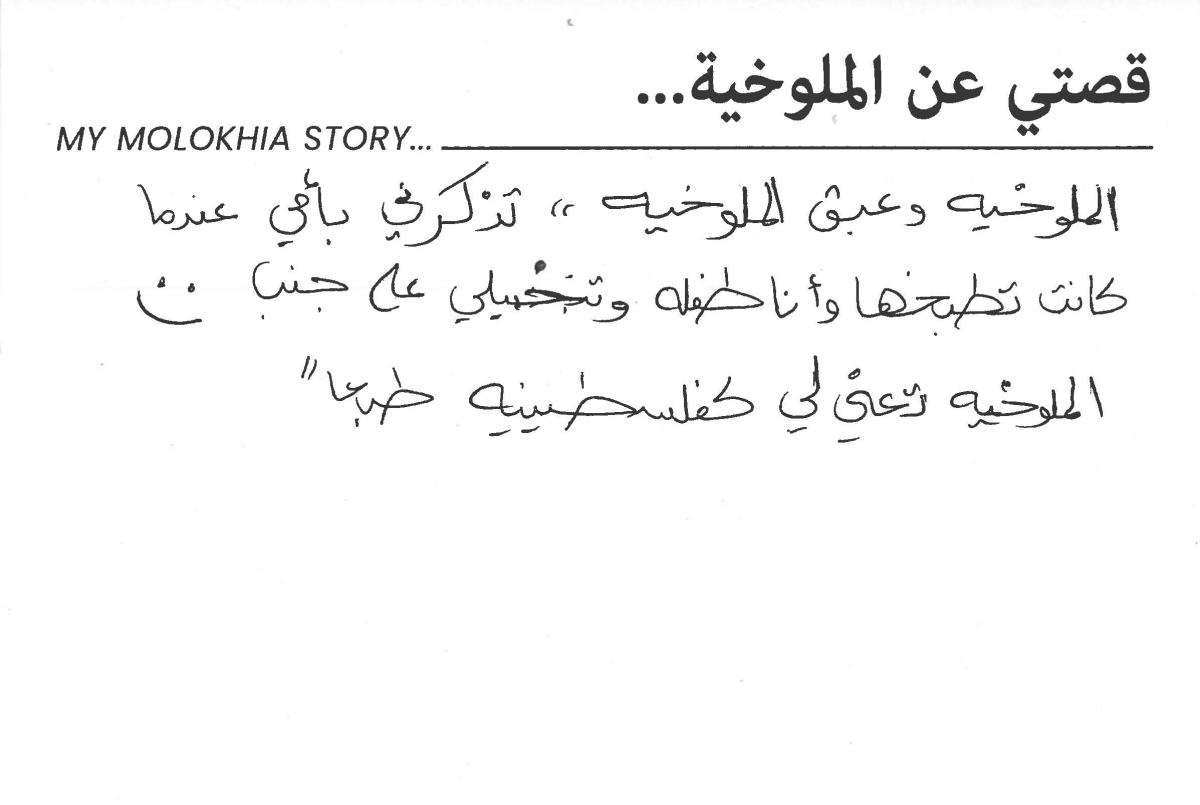 قصتي عن الملوخية...
MY MOLOKHIA STORY...
الملوخيه وعبق الملوخيه ،، تذكرني بأمي عندما
كانت تطبخها وأنا طفله وتخبيلي على جنب
الملوخيه تعني لي كفلسطينيه طبعا"